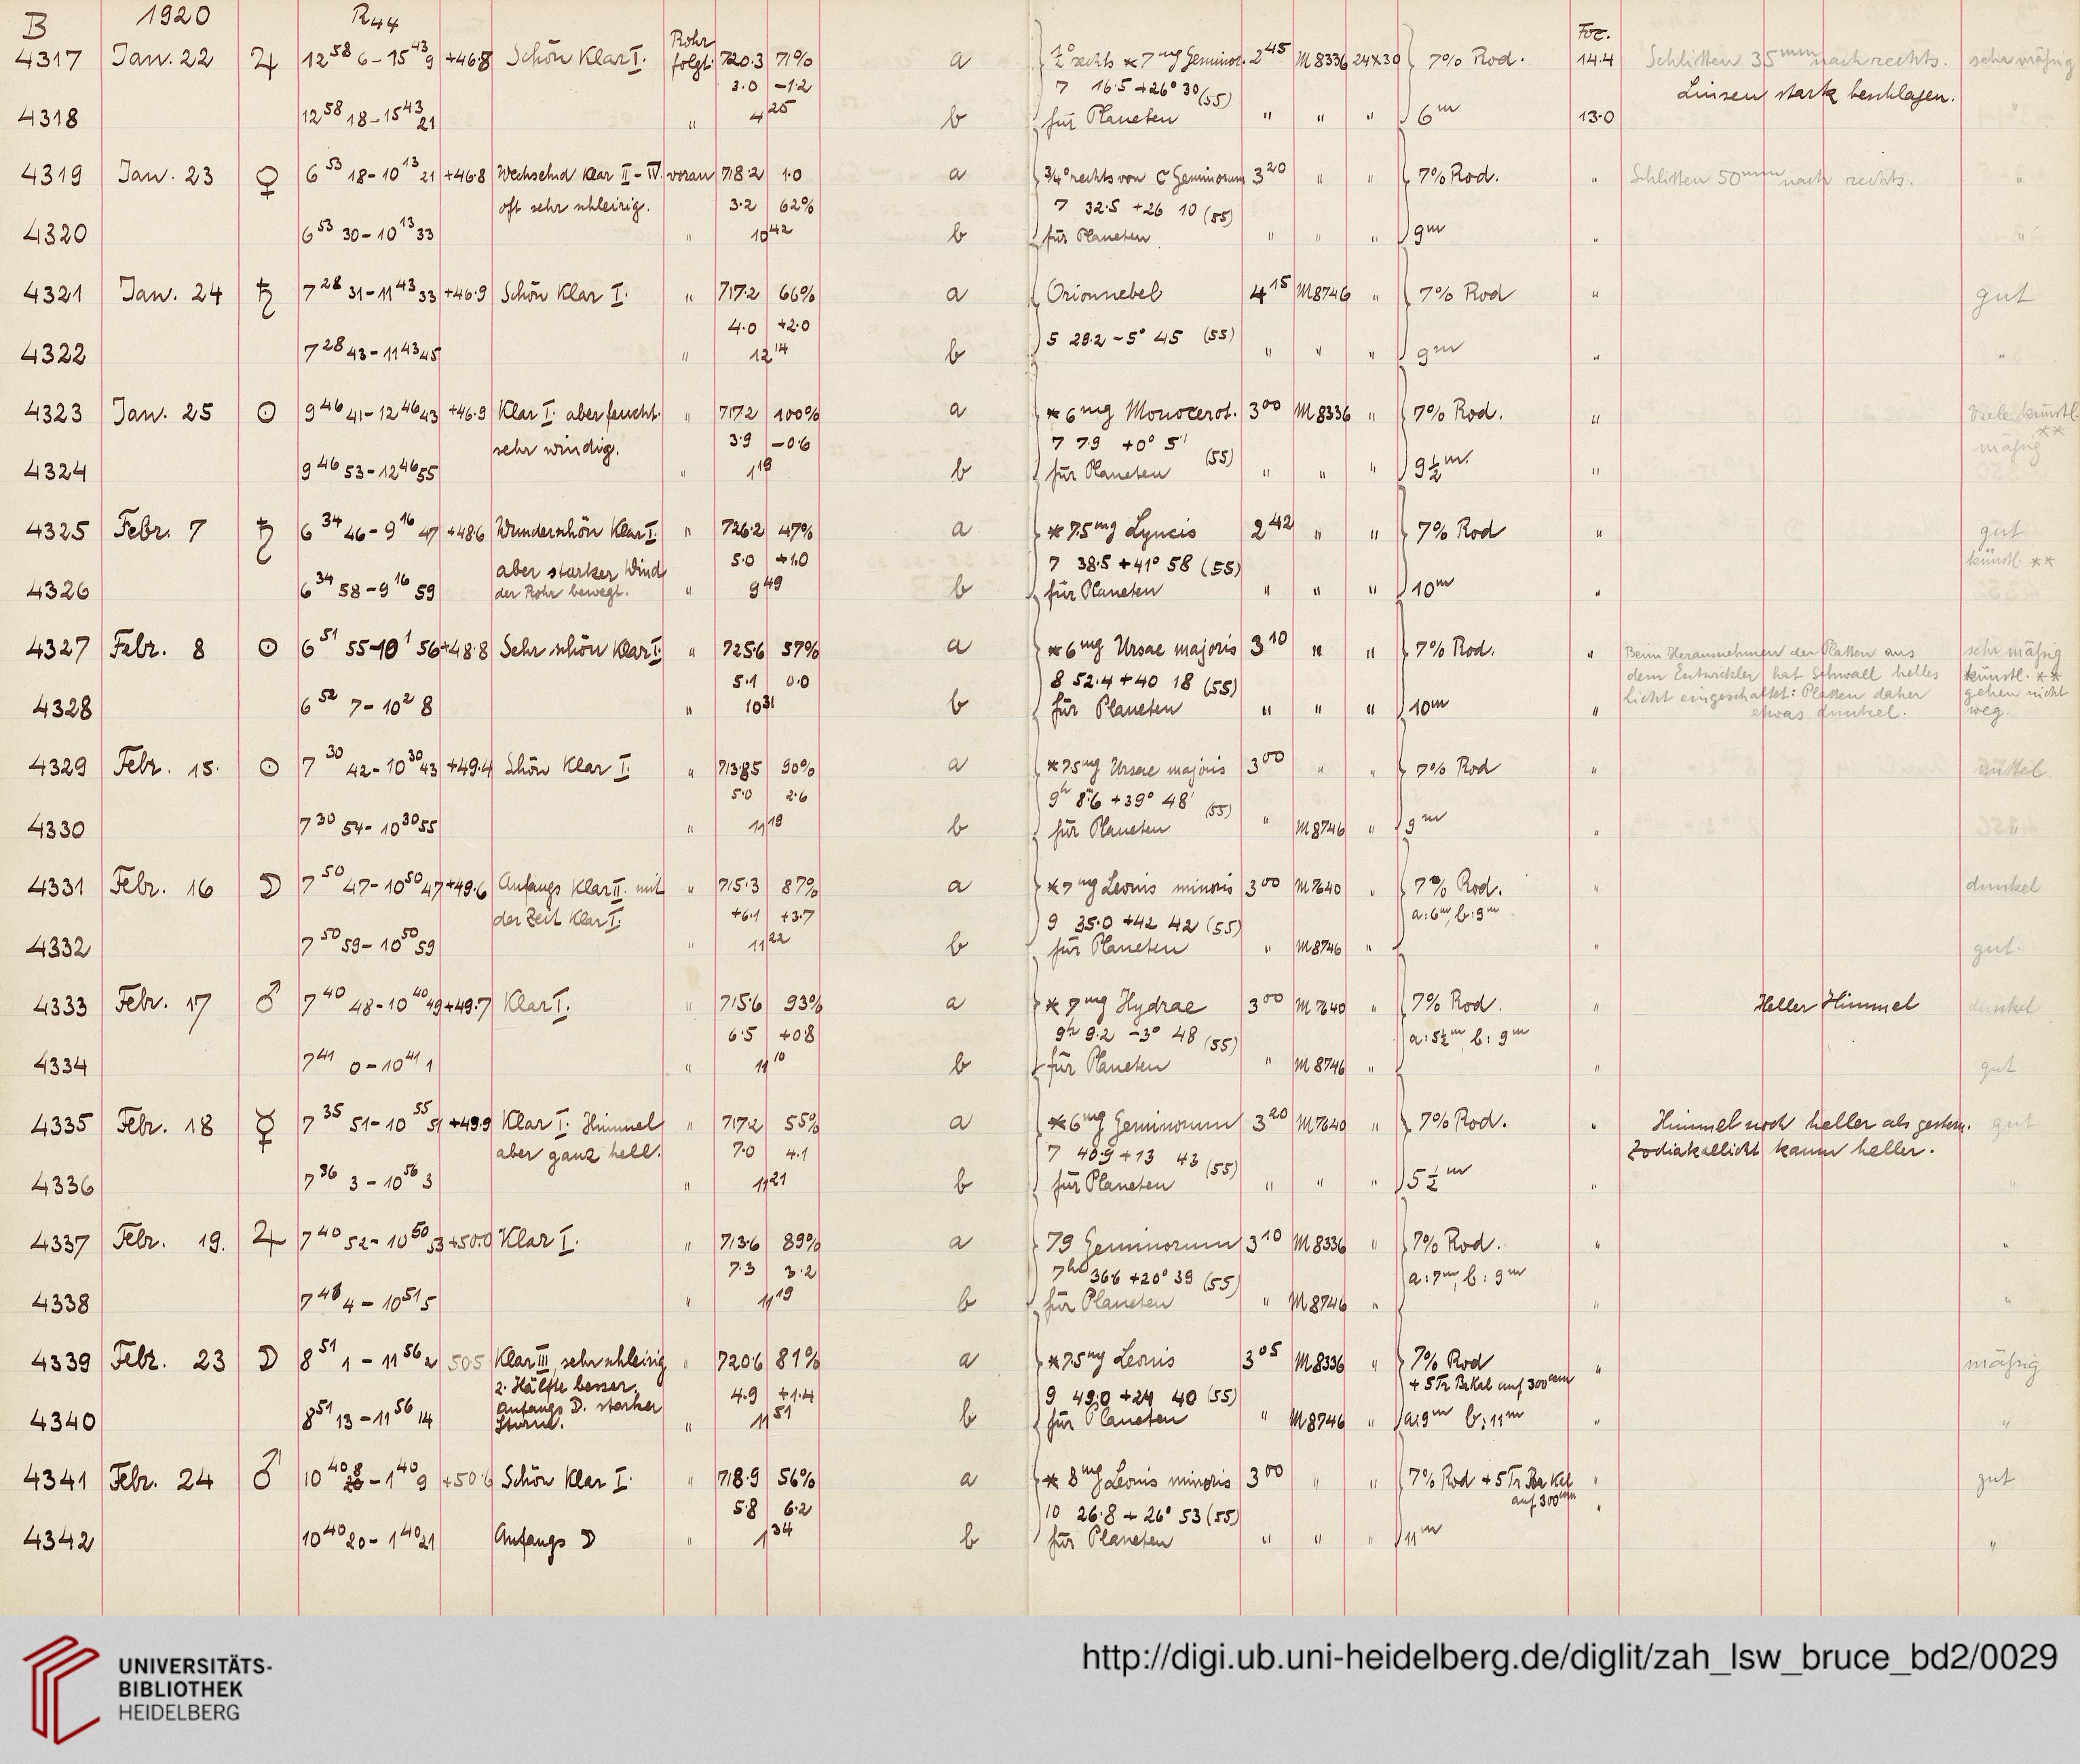 B 1920 R44
4317 Jan. 22 ♃ 12 58 6 - 15 43 9 +46.8 Schön Klar I. Rohr folgt. 720.3 71% a ½° rechts * 7 mg Geminor. 2 45 M 8336 24×30 7% Rod. Foc. 14.4 Schlitten 35 mm nach rechts. sehr mäßig
3.0 -1.2 7 16.5 +26° 30 (55) Linsen stark beschlagen.
4318 12 58 18 - 15 43 21 " 4 25 b für Planeten " " " 6 m 13.0 "
4319 Jan. 23 ♀ 6 53 18 - 10 13 21 +46.8 Wechselnd Klar II - IV. voran 718.2 1.0 a ¾° rechts von C Geminorum 3 20 " " 7% Rod. " Schlitten 50 mm nach rechts. "
oft sehr schleirig. 3.2 62% 7 32.5 +26 10 (55)
4320 6 53 30 - 10 13 33 " 10 42 b für Planeten " " " 9 m " "
4321 Jan. 24 ♄ 7 28 31 - 11 43 33 +46.9 Schön Klar I. " 717.2 66% a Orionnebel 4 15 M 8746 " 7% Rod " gut
4.0 +2.0 5 29.2 - 5° 45 (55)
4322 7 28 43 - 11 43 45 " 12 14 b " " " 9 m " "
4323 Jan. 25 ⊙ 9 46 41 - 12 46 43 +46.9 Klar I. aber feucht. " 717.2 100% a * 6 mg Monocerot. 3 00 M 8336 " 7% Rod. " Viele künstl. **
sehr windig. 3.9 -0.6 7 7.9 +0° 5' (55) mäßig
4324 9 46 53 - 12 46 55 " 1 18 b für Planeten " " " 9½ m. "
4325 Febr. 7 ♄ 6 34 46 - 9 16 47 +48.6 Wunderschön Klar I. " 726.2 47% a * 7.5 mg Lyncis 2 42 " " 7% Rod " gut
aber starker Wind 5.0 +1.0 7 38.5 +41° 58 (55) künstl. **
4326 6 34 58 - 9 16 59 der Rohr bewegt. " 9 49 b für Planeten " " " 10 m "
4327 Febr. 8 ⊙ 6 51 55 - 10 1 56 +48.8 Sehr schön Klar I. " 725.6 57% a * 6 mg Ursae majoris 3 10 " " 7% Rod. " Beim Herausnehmen der Platten aus sehr mäßig
5.1 0.0 8 52.4 +40 18 (55) dem Entwickler hat Schwall helles künstl. **
4328 6 52 7 - 10 2 8 " 10 31 b für Planeten " " " 10 m " Licht eingeschaltet: Platten daher gehen nicht
etwas dunkel. weg
4329 Febr. 15. ⊙ 7 30 42 - 10 30 43 +49.4 Schön Klar I. " 713.85 90% a * 7.5 mg Ursae majoris 3 00 " " 7% Rod " mittel.
5.0 2.6 9 h 8.6 +39° 48' (55)
4330 7 30 54 - 10 30 55 " 11 19 b für Planeten " M 8746 " 9 m " "
4331 Febr. 16 ☽ 7 50 47 - 10 50 47 +49.6 Anfangs Klar II. mit " 715.3 87% a * 7 mg Leonis minoris 3 00 M 7640 " 7% Rod. " dunkel
der Zeit Klar I. +6.1 +3.7 9 35.0 +42 42 (55) a: 6 m, b: 9 m
4332 7 50 59 - 10 50 59 " 11 22 b für Planeten " M 8746 " " gut.
4333 Febr. 17 ♂ 7 40 48 - 10 40 49 +49.7 Klar I. " 715.6 93% a * 7 mg Hydrae 3 00 M 7640 " 7% Rod. " Heller Himmel dunkel
6.5 +0.8 9 h 9.2 -3° 48 (55) a: 5½ m, b: 9 m
4334 7 41 0 - 10 41 1 " 11 10 b für Planeten " M 8746 " " gut
4335 Febr. 18 ☿ 7 35 51 - 10 55 51 +49.9 Klar I. Himmel " 717.2 55% a * 6 mg Geminorum 3 20 M 7640 " 7% Rod. " Himmel noch heller als gestern. gut
aber ganz hell. 7.0 4.1 7 40.9 +13 43 (55) Zodiakallicht kaum heller.
4336 7 36 3 - 10 56 3 " 11 21 b für Planeten " " " 5½ m " "
4337 Febr. 19. ♃ 7 40 52 - 10 50 53 +50.0 Klar I. " 713.6 89% a 79 Geminorum 3 10 M 8336 " 7% Rod. " "
7.3 3.2 7 h 36.6 +20° 39 (55) a: 7 m, b: 9 m
4338 7 41 4 - 10 51 5 " 11 19 b für Planeten " M 8746 " " "
4339 Febr. 23 ☽ 8 51 1 - 11 56 2 50.5 Klar III, sehr schleirig " 720.6 81% a * 7.5 mg Leonis 3 05 M 8336 " 7% Rod " mäßig
2. Hälfte besser. 4.9 +1.4 9 49.0 +24 40 (55) + 5 Tr Br Kal auf 300 ccm
4340 8 51 13 - 11 56 14 Anfangs ☽. starker Sturm. " 11 51 b für Planeten " M 8746 " a: 9 m b: 11 m " "
4341 Febr. 24 ♂ 10 40 8 - 1 40 9 +50.6 Schön Klar I. " 718.9 56% a * 8 mg Leonis minoris 3 00 " " 7% Rod + 5 Tr Br Kal " gut
5.8 6.2 10 26.8 + 26° 53 (55) auf 300 ccm "
4342 10 40 20 - 1 40 21 Anfangs ☽ " 1 34 b für Planeten " " " 11 m "
UNIVERSITÄTS-
BIBLIOTHEK
HEIDELBERG
http://digi.ub.uni-heidelberg.de/diglit/zah_lsw_bruce_bd2/0029